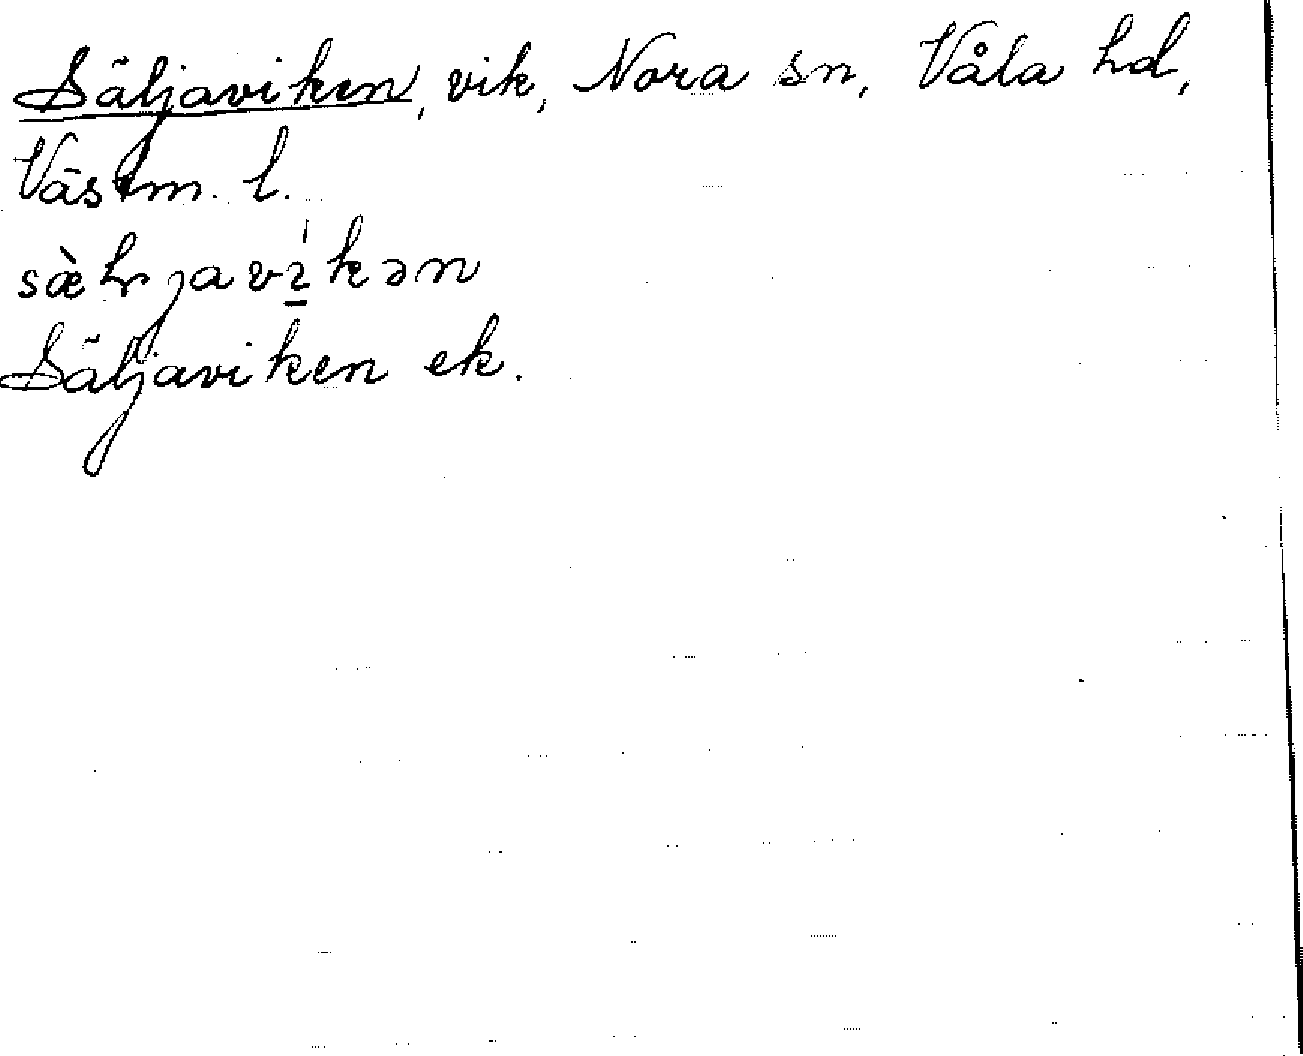 Säljaviken, vik, Nora sn, Våla hd,
Västm. l.
Säljaviken ek.